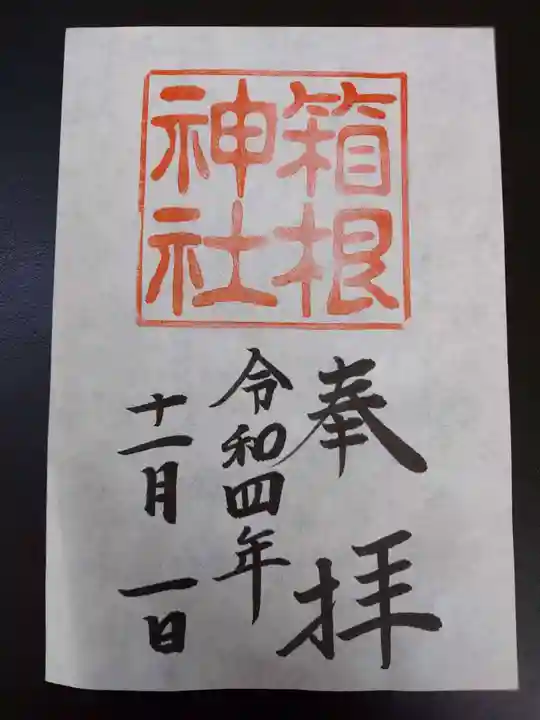 箱根
神社
奉拝
令和四年
十一月一日